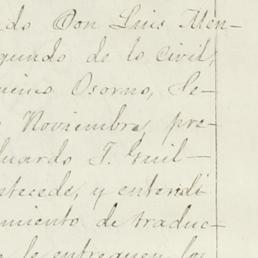 do Don Luis Men-
gundo de lo civil,
imino Osorno, Se-
Noviembre, pre-
duardo F. Guil-
ntecede, y entendi
miento de traduc-
le entreguen los